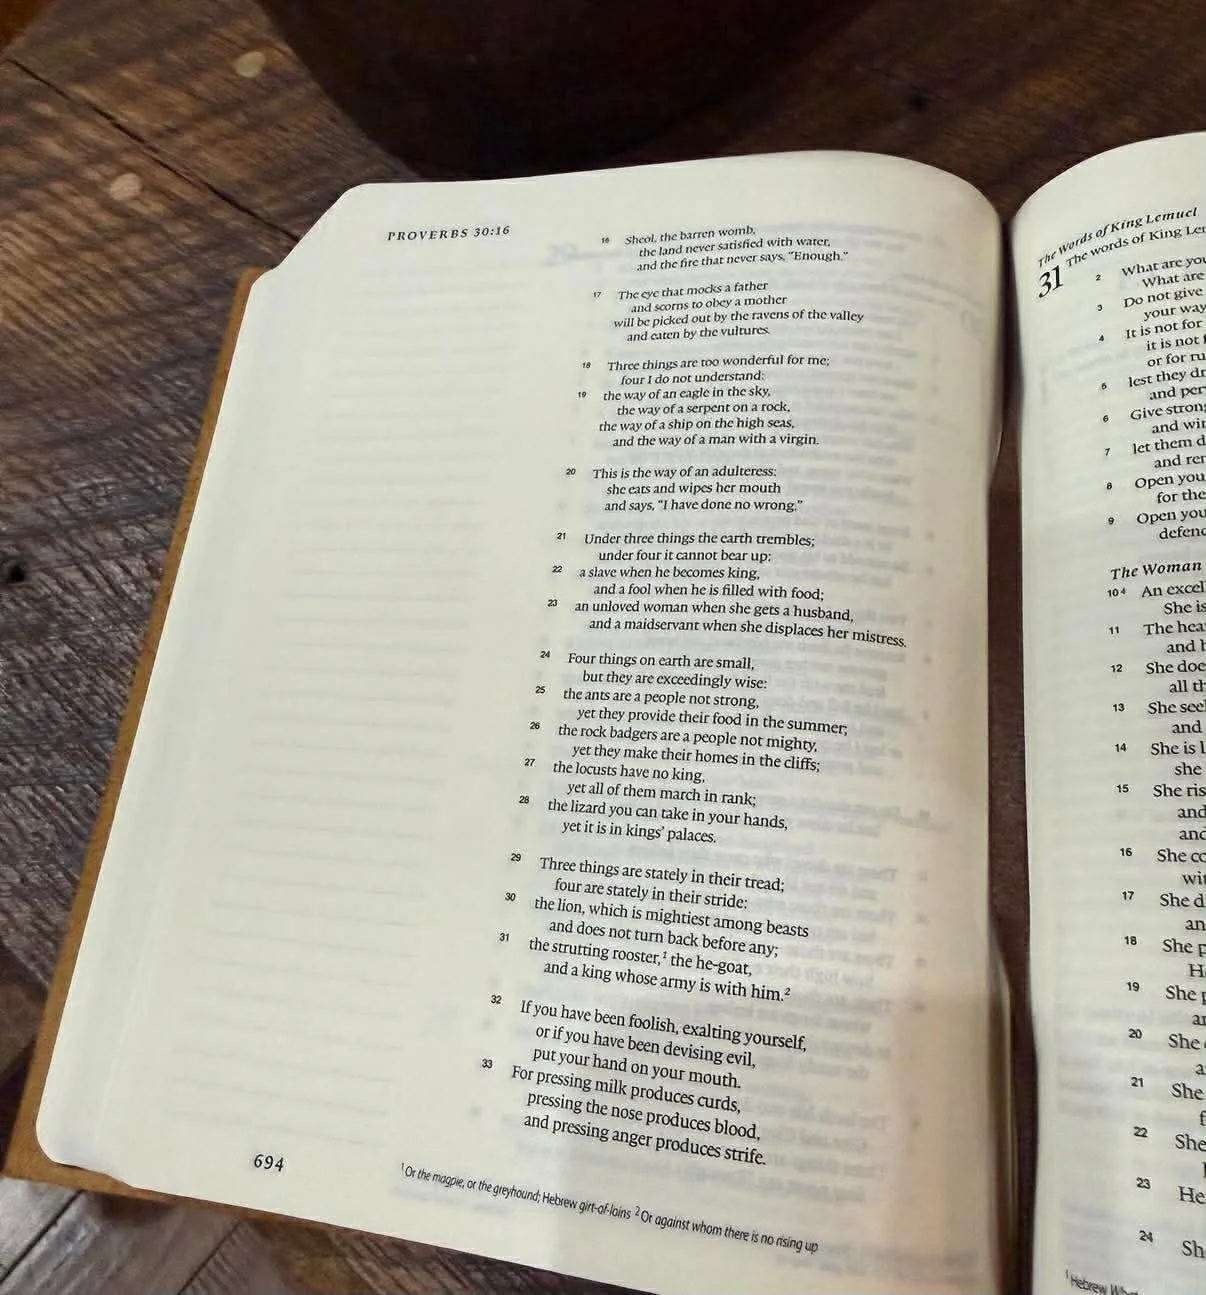 PROVERBS 30:16
16 Sheol, the barren womb,
the land never satisfied with water,
and the fire that never says, "Enough."
17 The eye that mocks a father
and scorns to obey a mother
will be picked out by the ravens of the valley
and eaten by the vultures.
18 Three things are too wonderful for me;
four I do not understand:
19 the way of an eagle in the sky,
the way of a serpent on a rock,
the way of a ship on the high seas,
and the way of a man with a virgin.
20 This is the way of an adulteress:
she eats and wipes her mouth
and says, "I have done no wrong."
21 Under three things the earth trembles;
under four it cannot bear up:
22 a slave when he becomes king,
and a fool when he is filled with food;
23 an unloved woman when she gets a husband,
and a maidservant when she displaces her mistress.
24 Four things on earth are small,
but they are exceedingly wise:
25 the ants are a people not strong,
yet they provide their food in the summer;
26 the rock badgers are a people not mighty,
yet they make their homes in the cliffs;
27 the locusts have no king,
yet all of them march in rank;
28 the lizard you can take in your hands,
yet it is in kings' palaces.
29 Three things are stately in their tread;
four are stately in their stride:
30 the lion, which is mightiest among beasts
and does not turn back before any;
31 the strutting rooster,1 the he-goat,
and a king whose army is with him.2
32 If you have been foolish, exalting yourself,
or if you have been devising evil,
put your hand on your mouth.
33 For pressing milk produces curds,
pressing the nose produces blood,
and pressing anger produces strife.
694
1 Or the magpie, or the greyhound; Hebrew girt-of-loins 2 Or against whom there is no rising up
The Words of King Lemuel
31 The words of King
2 What are
What are
3 Do not give
your
4 It is not for
it is not
or for
5 lest they
and
6 Give
and
7 let them
and
8 Open
for the
9 Open
The Woman
10 4 An
She is
11 The
and
12 She
all
13 She
and
14 She is
she
15 She
and
and
16 She
17 She
18 She
19 She
20 She
21 She
22 She
23
24
1 Hebrew